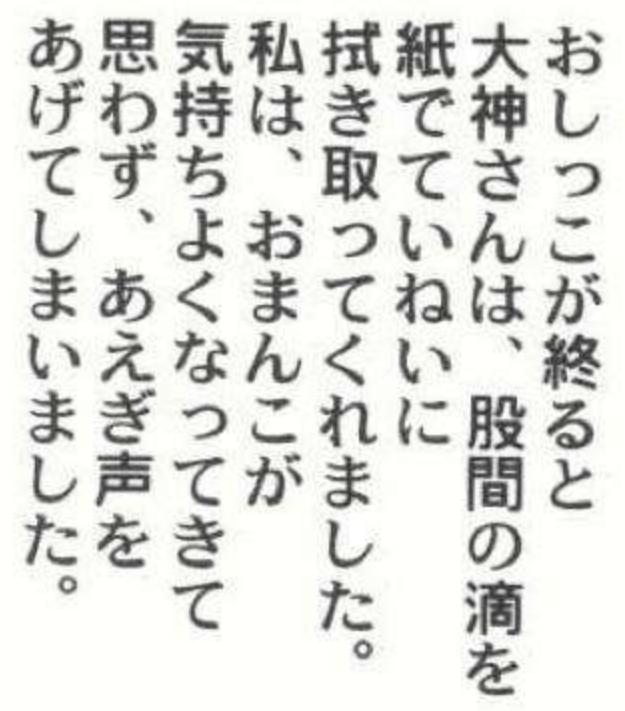 おしっこが終ると
大神さんは、股間の滴を
紙でていねいに
拭き取ってくれました。
私は、おまんこが
気持ちよくなってきて
思わず、あえぎ声を
あげてしまいました。